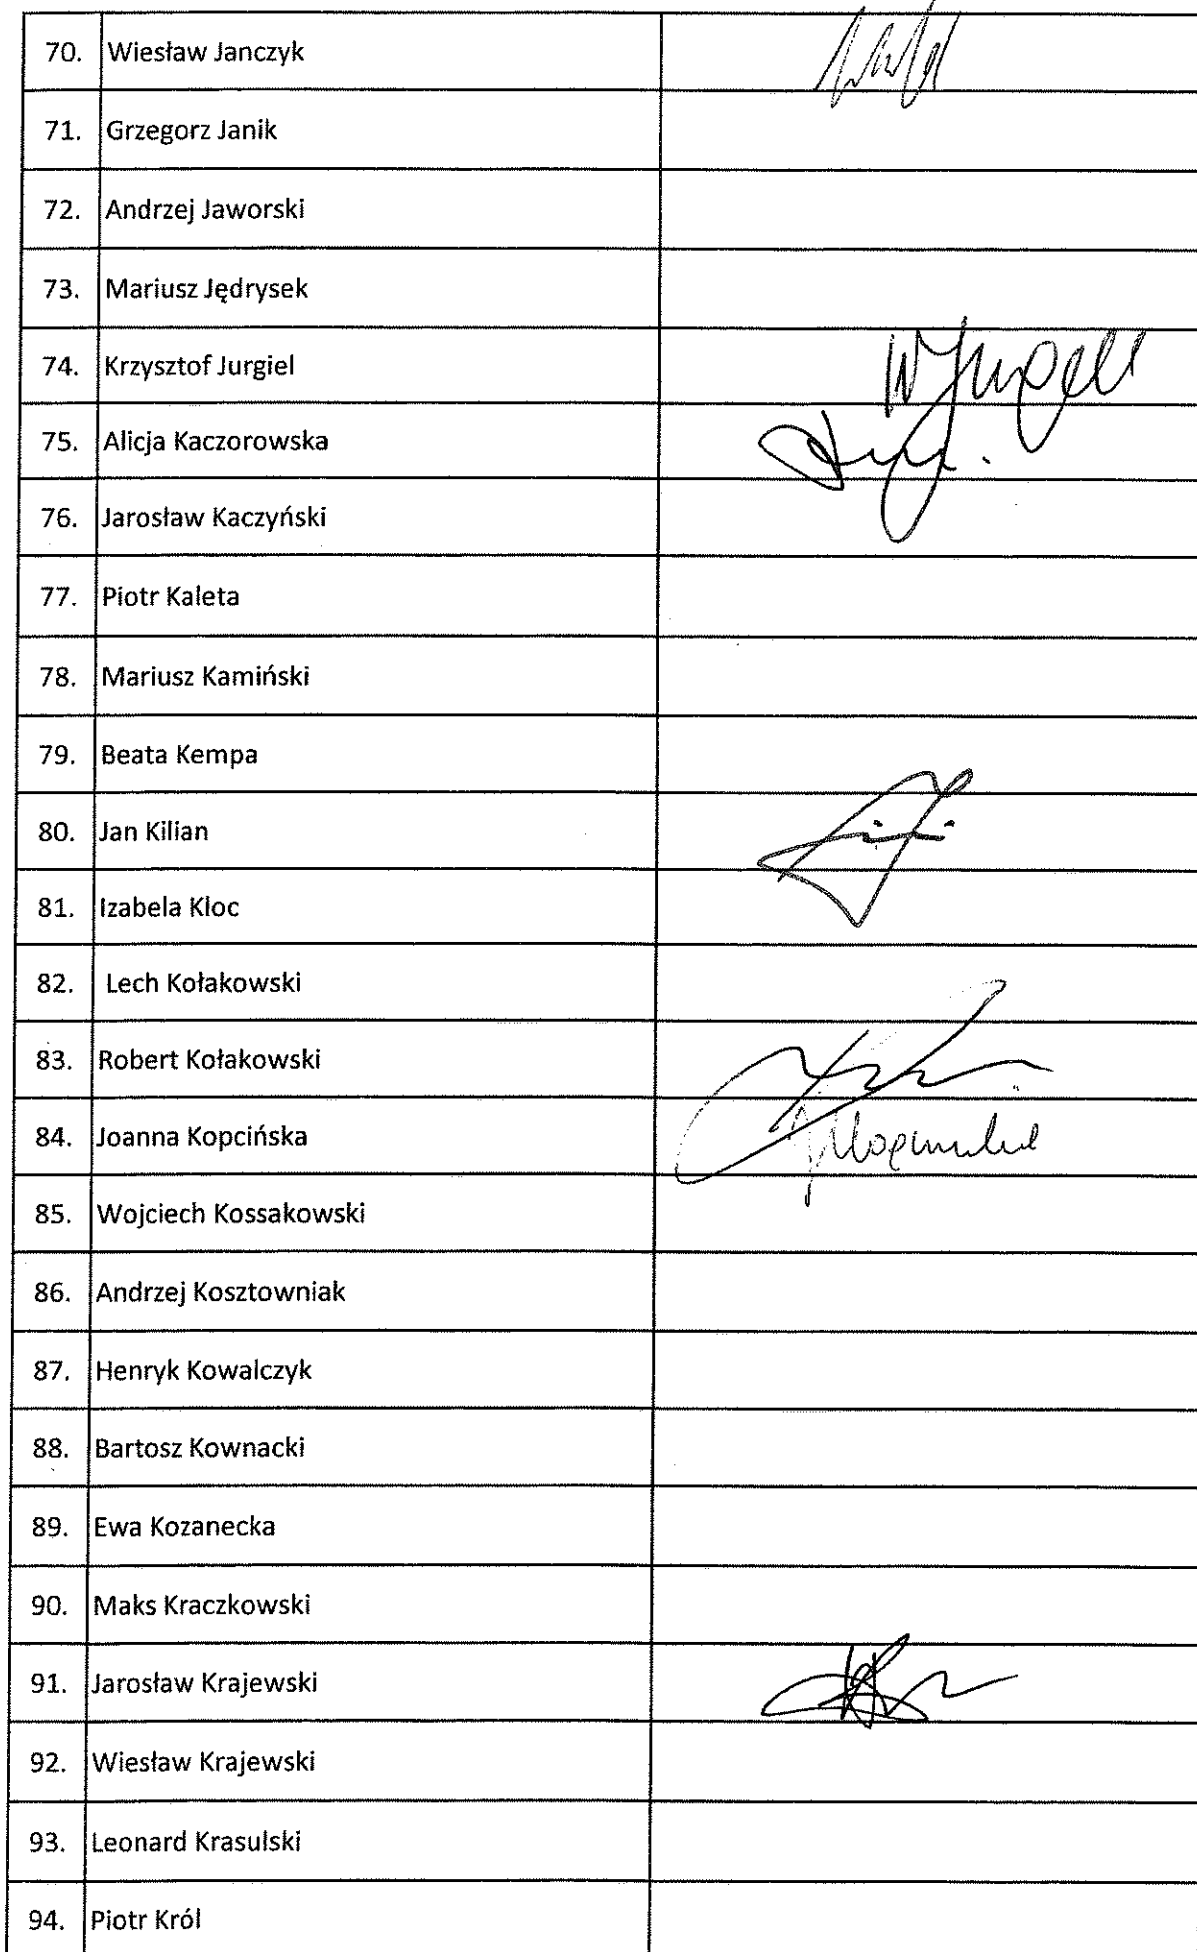 70. Wiesław Janczyk
71. Grzegorz Janik
72. Andrzej Jaworski
73. Mariusz Jędrysek
74. Krzysztof Jurgiel
75. Alicja Kaczorowska
76. Jarosław Kaczyński
77. Piotr Kaleta
78. Mariusz Kamiński
79. Beata Kempa
80. Jan Kilian
81. Izabela Kloc
82. Lech Kołakowski
83. Robert Kołakowski
84. Joanna Kopcińska
85. Wojciech Kossakowski
86. Andrzej Kosztowniak
87. Henryk Kowalczyk
88. Bartosz Kownacki
89. Ewa Kozanecka
90. Maks Kraczkowski
91. Jarosław Krajewski
92. Wiesław Krajewski
93. Leonard Krasulski
94. Piotr Król